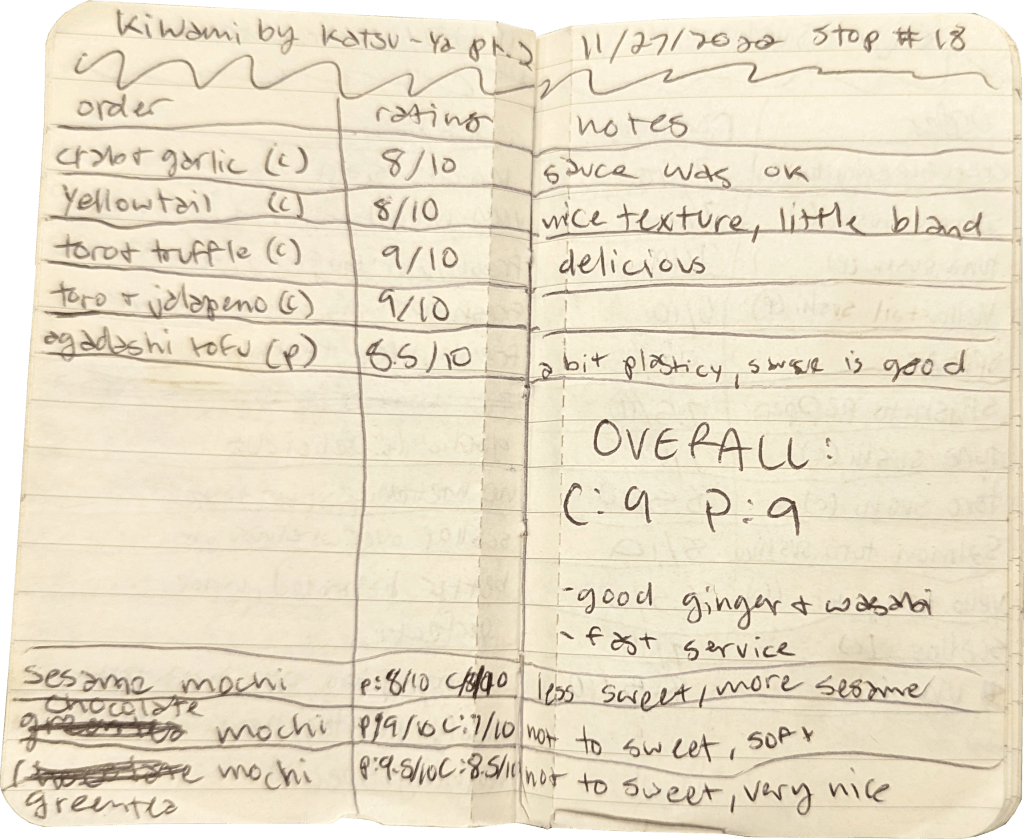 Kiwami by Katsu-Ya pt.2 11/27/2022 Stop #18
order rating notes
crab + garlic (c) 8/10 sauce was ok
Yellowtail (c) 8/10 nice texture, little bland
toro + truffle (c) 9/10 delicious
toro + jalapeno (c) 9/10
agadashi tofu (p) 8.5/10 a bit plasticy, sauce is good
OVERALL:
C:9 P:9
- good ginger + wasabi
- fast service
sesame mochi p:8/10 C/8/10 less sweet, more sesame
Chocolate
mochi p:9/10 C:7/10 not to sweet, soft
mochi p:9.5/10 C:8.5/10 not to sweet, very nice
greentea